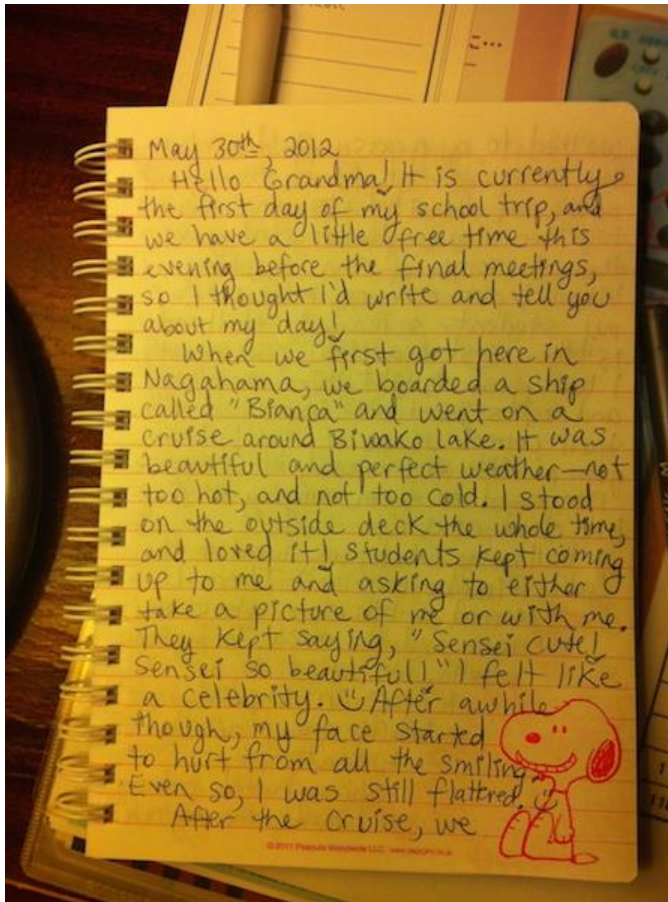 May 30th, 2012
Hello Grandma! It is currently
the first day of my school trip, and
we have a little free time this
evening before the final meetings,
so I thought I'd write and tell you
about my day!
When we first got here in
Nagahama, we boarded a ship
called "Bianca" and went on a
cruise around Biwako lake. It was
beautiful and perfect weather—not
too hot, and not too cold. I stood
on the outside deck the whole time,
and loved it! Students kept coming
up to me and asking to either
take a picture of me or with me.
They kept saying, "Sensei cute!
Sensei so beautiful!" I felt like
a celebrity. After awhile
though, my face started
to hurt from all the smiling.
Even so, I was still flattred.
After the cruise, we
©2011 Peanuts Worldwide LLC